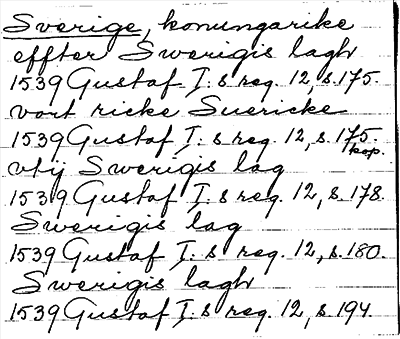 Sverige, konungarike
effter Swerigis lagh
1539 Gustaf I:s reg. 12, s. 175.
vort ricke Suericke
1539 Gustaf I:s reg. 12, s. 175.
kop.
vtij Swerigis lag
1539 Gustaf I:s reg. 12, s. 178.
Swerigis lag
1539 Gustaf I:s reg. 12, s. 180.
Swerigis lagh
1539 Gustaf I:s reg. 12, s. 194.